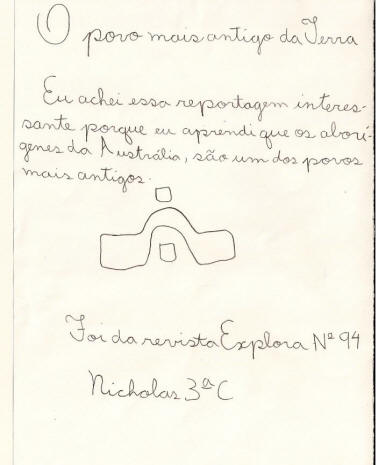 O povo mais antigo da Terra
Eu achei essa reportagem interes-
sante porque eu aprendi que os aborí-
genes da Austrália, são um dos povos
mais antigos.
Foi da revista Explora Nº 94
Nicholas 3ª C